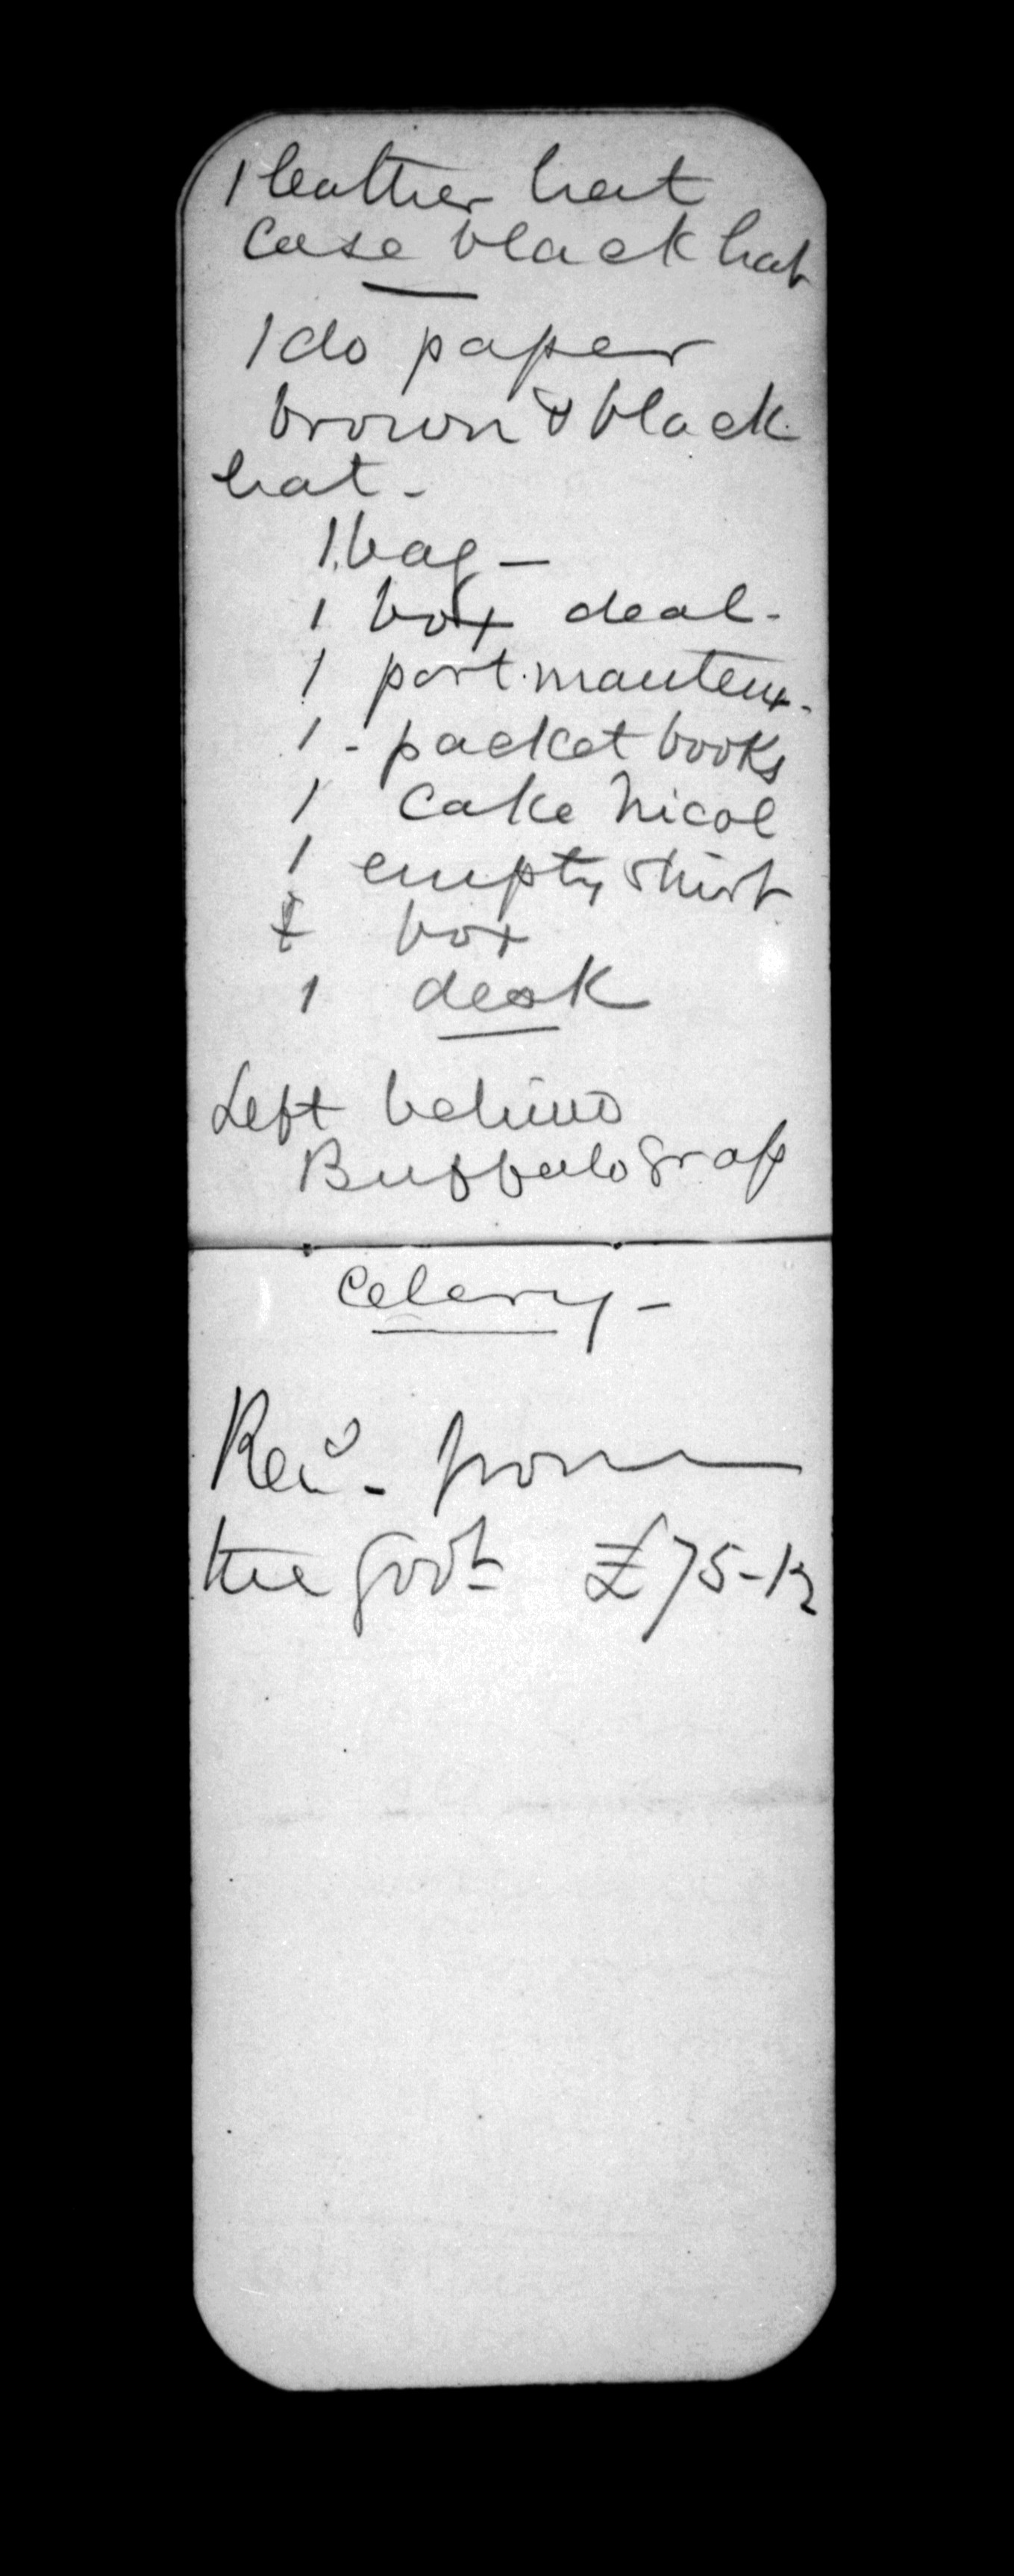 1 leather hat
case black hat
1 do paper
brown & black
hat -
1 bag -
1 box deal -
1 portmanteux -
1 - packet books
1 cake Nicol
1 empty shirt
box
1 desk
Left behind
Buffalo grass
Celery -
Recd - from
the Govt £75-12